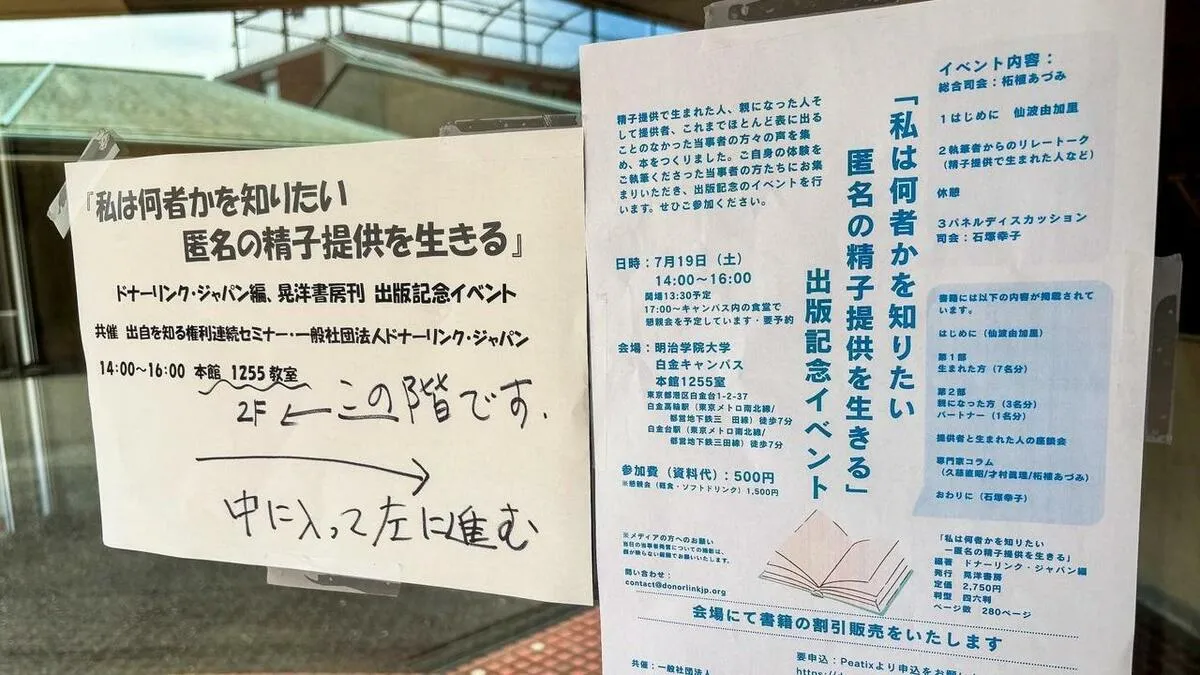 『私は何者かを知りたい
匿名の精子提供を生きる』
ドナーリンク・ジャパン編、晃洋書房刊 出版記念イベント
共催 出自を知る権利連続セミナー・一般社団法人ドナーリンク・ジャパン
14:00〜16:00 本館 1255教室
2F ← この階です.
→
中に入って左に進む
イベント内容：
総合司会：柘植あづみ
1はじめに 仙波由加里
2執筆者からのリレートーク
（精子提供で生まれた人など）
休憩
3パネルディスカッション
司会：石塚幸子
「私は何者かを知りたい
匿名の精子提供を生きる」
出版記念イベント
精子提供で生まれた人、親になった人そ
して提供者、これまでほとんど表に出る
ことのなかった当事者の方々の声を集
め、本をつくりました。ご自身の体験を
ご執筆くださった当事者の方たちにお集
まりいただき、出版記念のイベントを行
います。ぜひご参加ください。
日時：7月19日（土）
14:00〜16:00
開場13:30予定
17:00〜キャンパス内の食堂で
懇親会を予定しています・要予約
会場：明治学院大学
白金キャンパス
本館1255室
東京都港区白金台1-2-37
白金高輪駅（東京メトロ南北線/
都営地下鉄三 田線）徒歩7分
白金台駅（東京メトロ南北線/
都営地下鉄三田線）徒歩7分
参加費（資料代）：500円
※懇親会（軽食・ソフトドリンク）1,500円
書籍には以下の内容が掲載されて
います。
はじめに（仙波由加里）
第1部
生まれた方（7名分）
第2部
親になった方（3名分）
パートナー（1名分）
提供者と生まれた人の座談会
専門家コラム
（久慈直昭/才村眞理/柘植あづみ）
おわりに（石塚幸子）
※メディアの方へのお願い
当日の当事者発言についての撮影は、
顔が映らない範囲でお願いいたします。
問い合わせ：
contact@donorlinkjp.org
「私は何者かを知りたい
―匿名の精子提供を生きる」
編著 ドナーリンク・ジャパン編
発行 晃洋書房
定価 2,750円
判型 四六判
ページ数 280ページ
会場にて書籍の割引販売をいたします
共催：一般社団法人
要申込：Peatixより申込をお願し